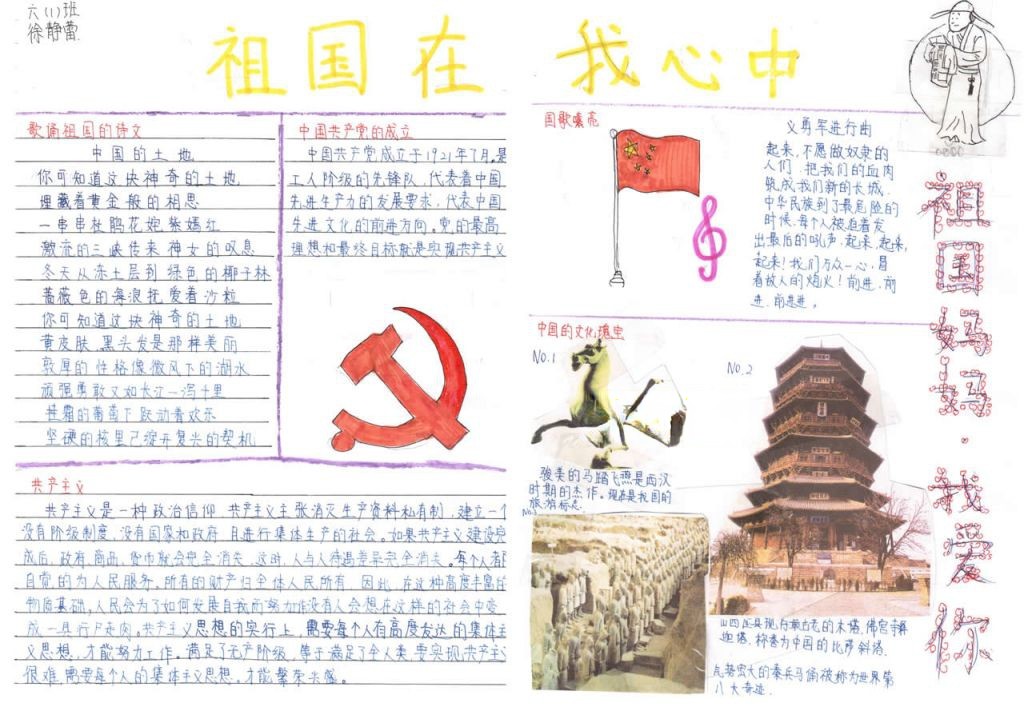 六(1)班
徐静蕾
祖国在我心中
歌诵祖国的诗文
中国的土地
你可知道这块神奇的土地
埋藏着黄金般的相思
一串串杜鹃花姹紫嫣红
激流的三峡传来神女的叹息
冬天从冻土层到绿色的椰子林
蔷薇色的海浪抚爱着沙粒
你可知道这块神奇的土地
黄皮肤、黑头发是那样美丽
敦厚的性格像微风下的湖水
顽强勇敢又如长江一泻千里
挂霜的葡萄下跃动着欢乐
坚硬的核里已绽开复兴的契机
中国共产党的成立
中国共产党成立于1921年7月.是
工人阶级的先锋队，代表着中国
先进生产力的发展要求，代表中国
先进文化的前进方向。党的最高
理想和最终目标就是实现共产主义
共产主义
共产主义是一种政治信仰，共产主义主张消灭生产资料私有制，建立一个
没有阶级制度、没有国家和政府，且进行集体生产的社会。如果共产主义建设完
成后，政府、商品、货币就会完全消失，这时，人与人待遇差异完全消失。每个人者
自觉的为人民服务，所有的财产归全体人民所有，因此，在这种高度丰富的
物质基础，人民会为了如何发展自我而努力作没有人会想在这样的社会中变
成一具行尸走肉。共产主义思想的实行上，需要每个人有高度发达的集体主
义思想，才能努力工作。满足了无产阶级，等于满足了全人类，要实现共产主义
很难，需要每个人的集体主义思想，才能繁荣兴盛。
国歌嘹亮
义勇军进行曲
起来，不愿做奴隶的
人们，把我们的血肉
筑成我们新的长城，
中华民族到了最危险的
时候，每个人被迫着发
出最后的吼声，起来，起来，
起来！我们万众一心，冒
着敌人的炮火！前进，前
进，前进进。
中国的文化瑰宝
No.1
骏美的马踏飞燕是西汉
时期的杰作。现在是我国的
旅游标志。
No.2
山西应县现存最古老的木塔，佛宫寺释
迦塔，称誉为中国的比萨斜塔。
No.3
气势宏大的秦兵马俑被称为世界第
八大奇迹。
祖国妈妈·我爱你